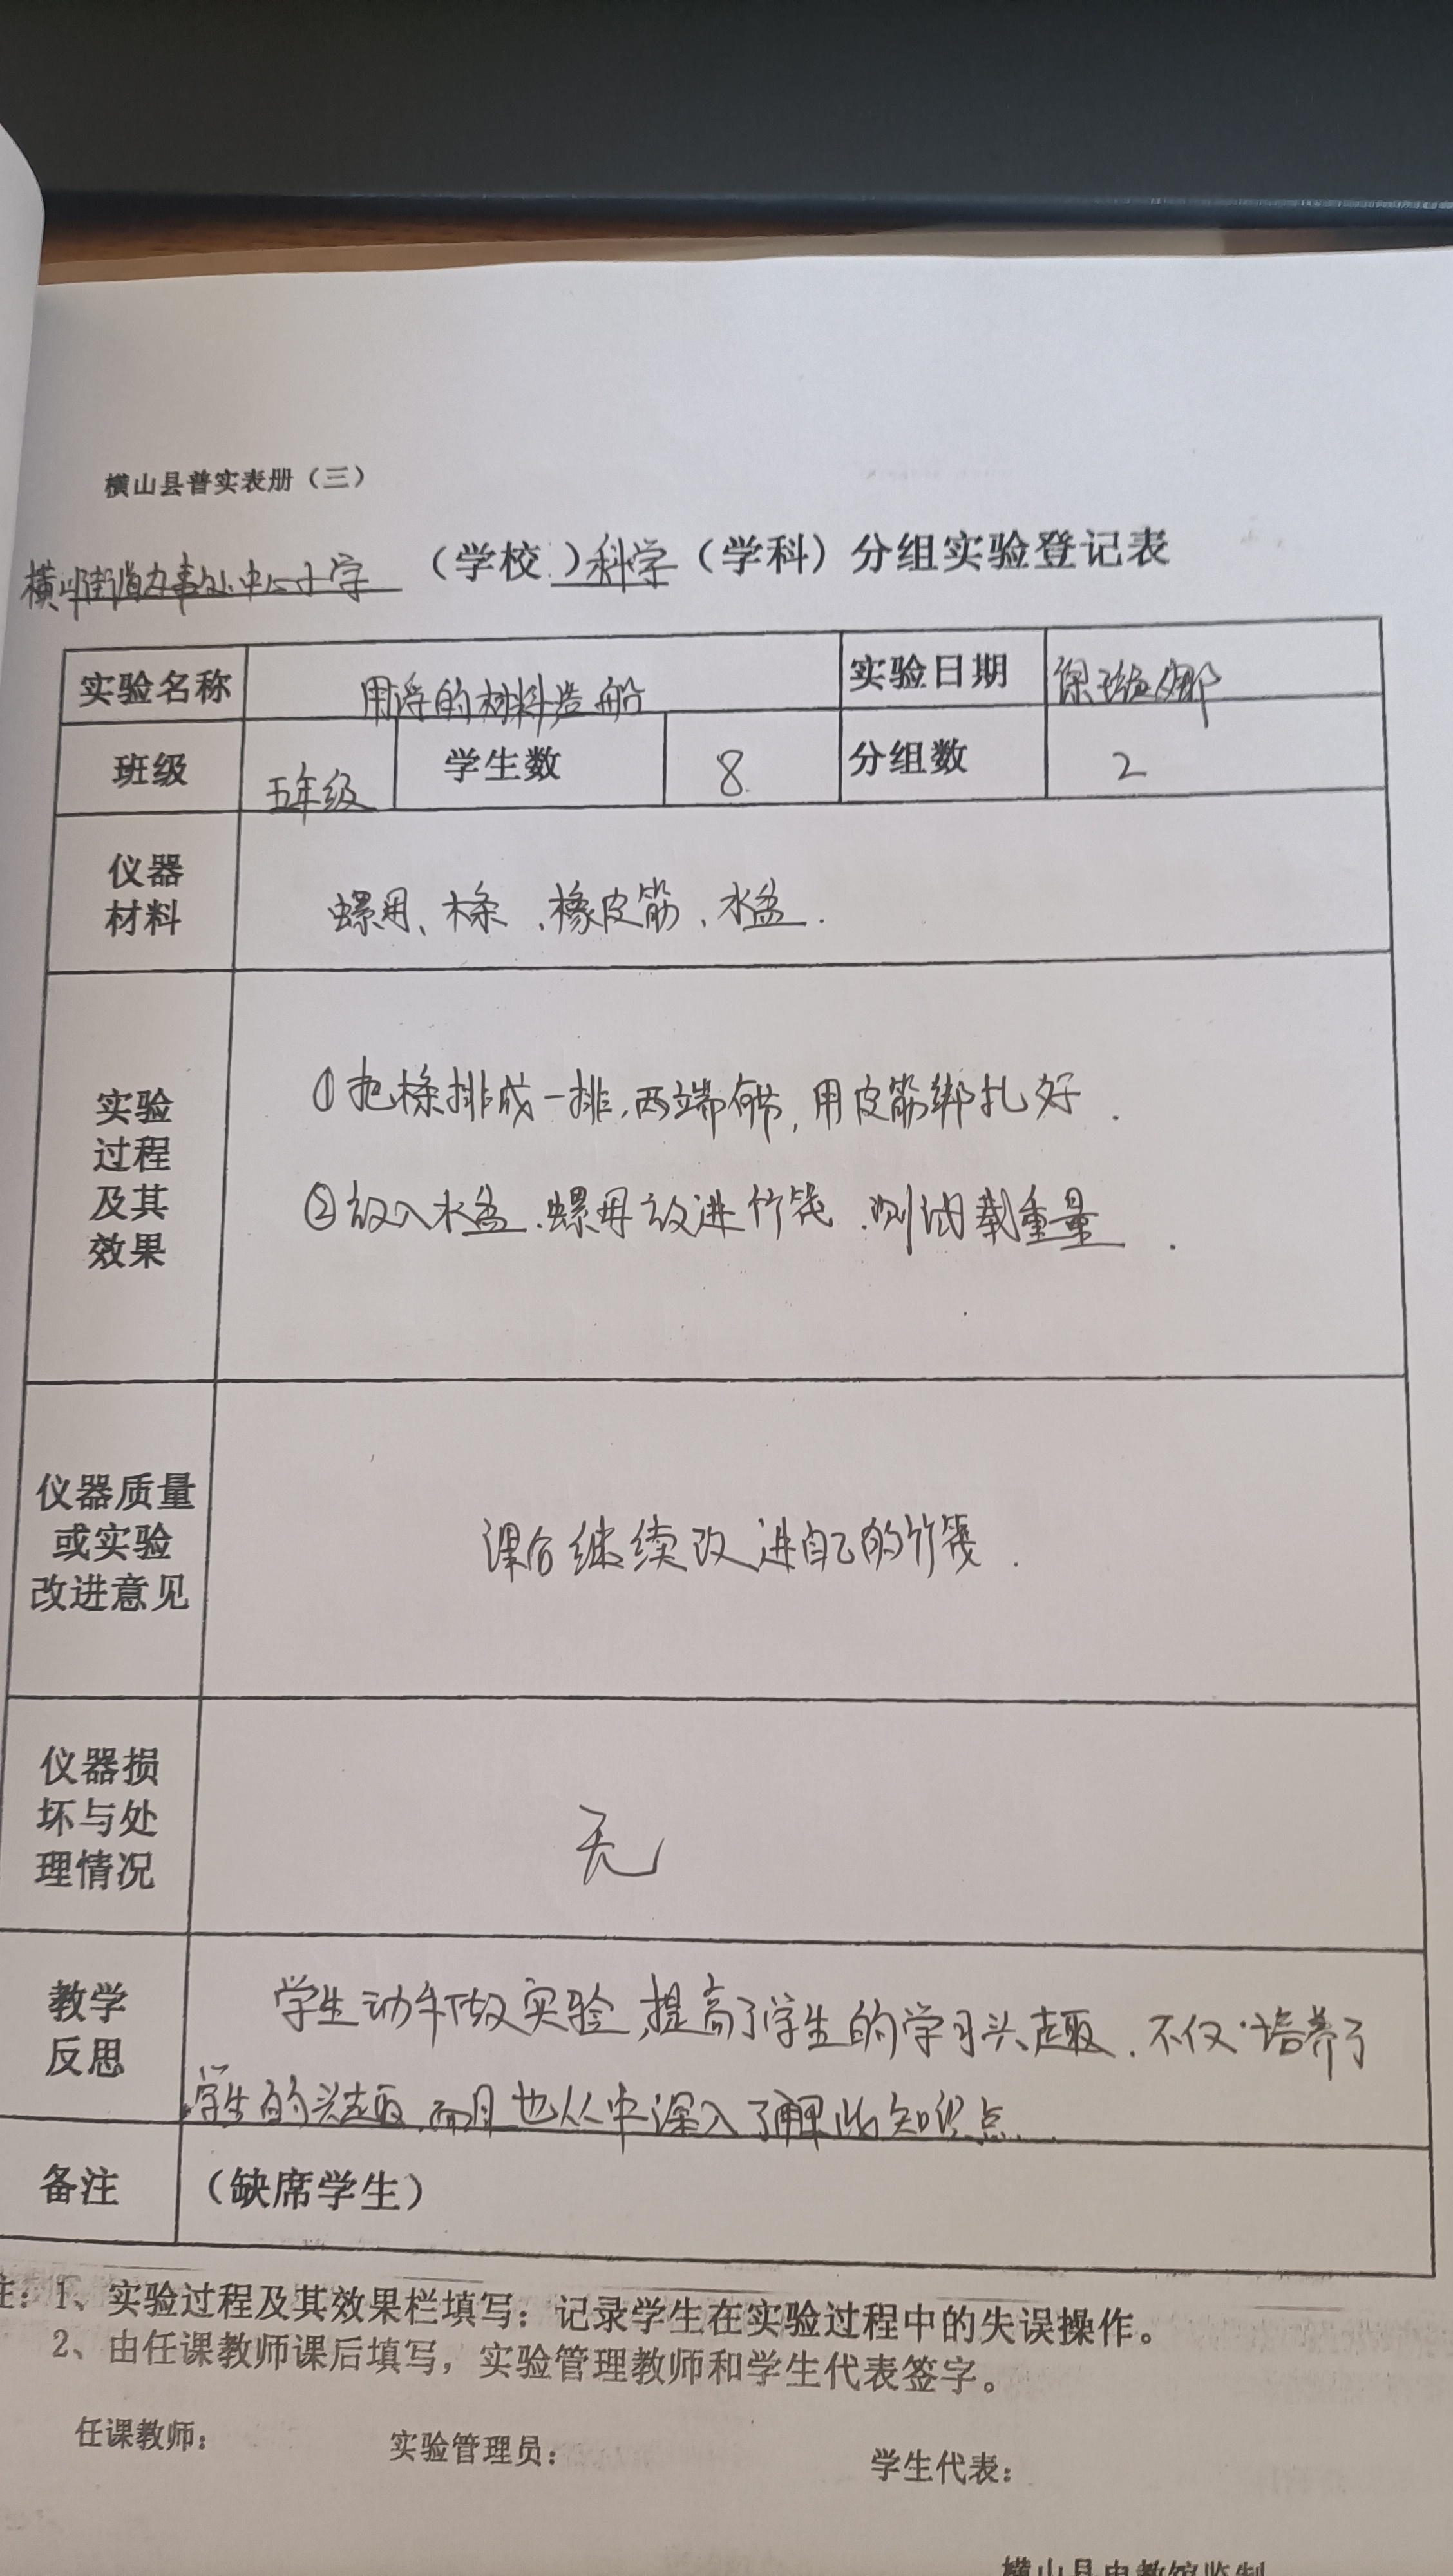 横山县普实表册（三）
横山街道办事处中心小学（学校）科学（学科）分组实验登记表
实验名称 用浮的材料造船 实验日期
班级 五年级 学生数 8 分组数 2
仪器
材料
螺母、木条、橡皮筋、水盆.
实验
过程
及其
效果
①把木条排成一排,两端,用皮筋绑扎好.
②放入水盆、螺母放进竹筏、测试载重量.
仪器质量
或实验
改进意见
课后继续改进自己的竹筏.
仪器损
坏与处
理情况
无
教学
反思
学生动手做实验,提高了学生的学习兴趣.不仅培养了
学生的兴趣,而且也从中深入了解此知识点.
备注 （缺席学生）
注：1、实验过程及其效果栏填写：记录学生在实验过程中的失误操作。
2、由任课教师课后填写，实验管理教师和学生代表签字。
任课教师： 实验管理员： 学生代表：
横山县电教馆监制